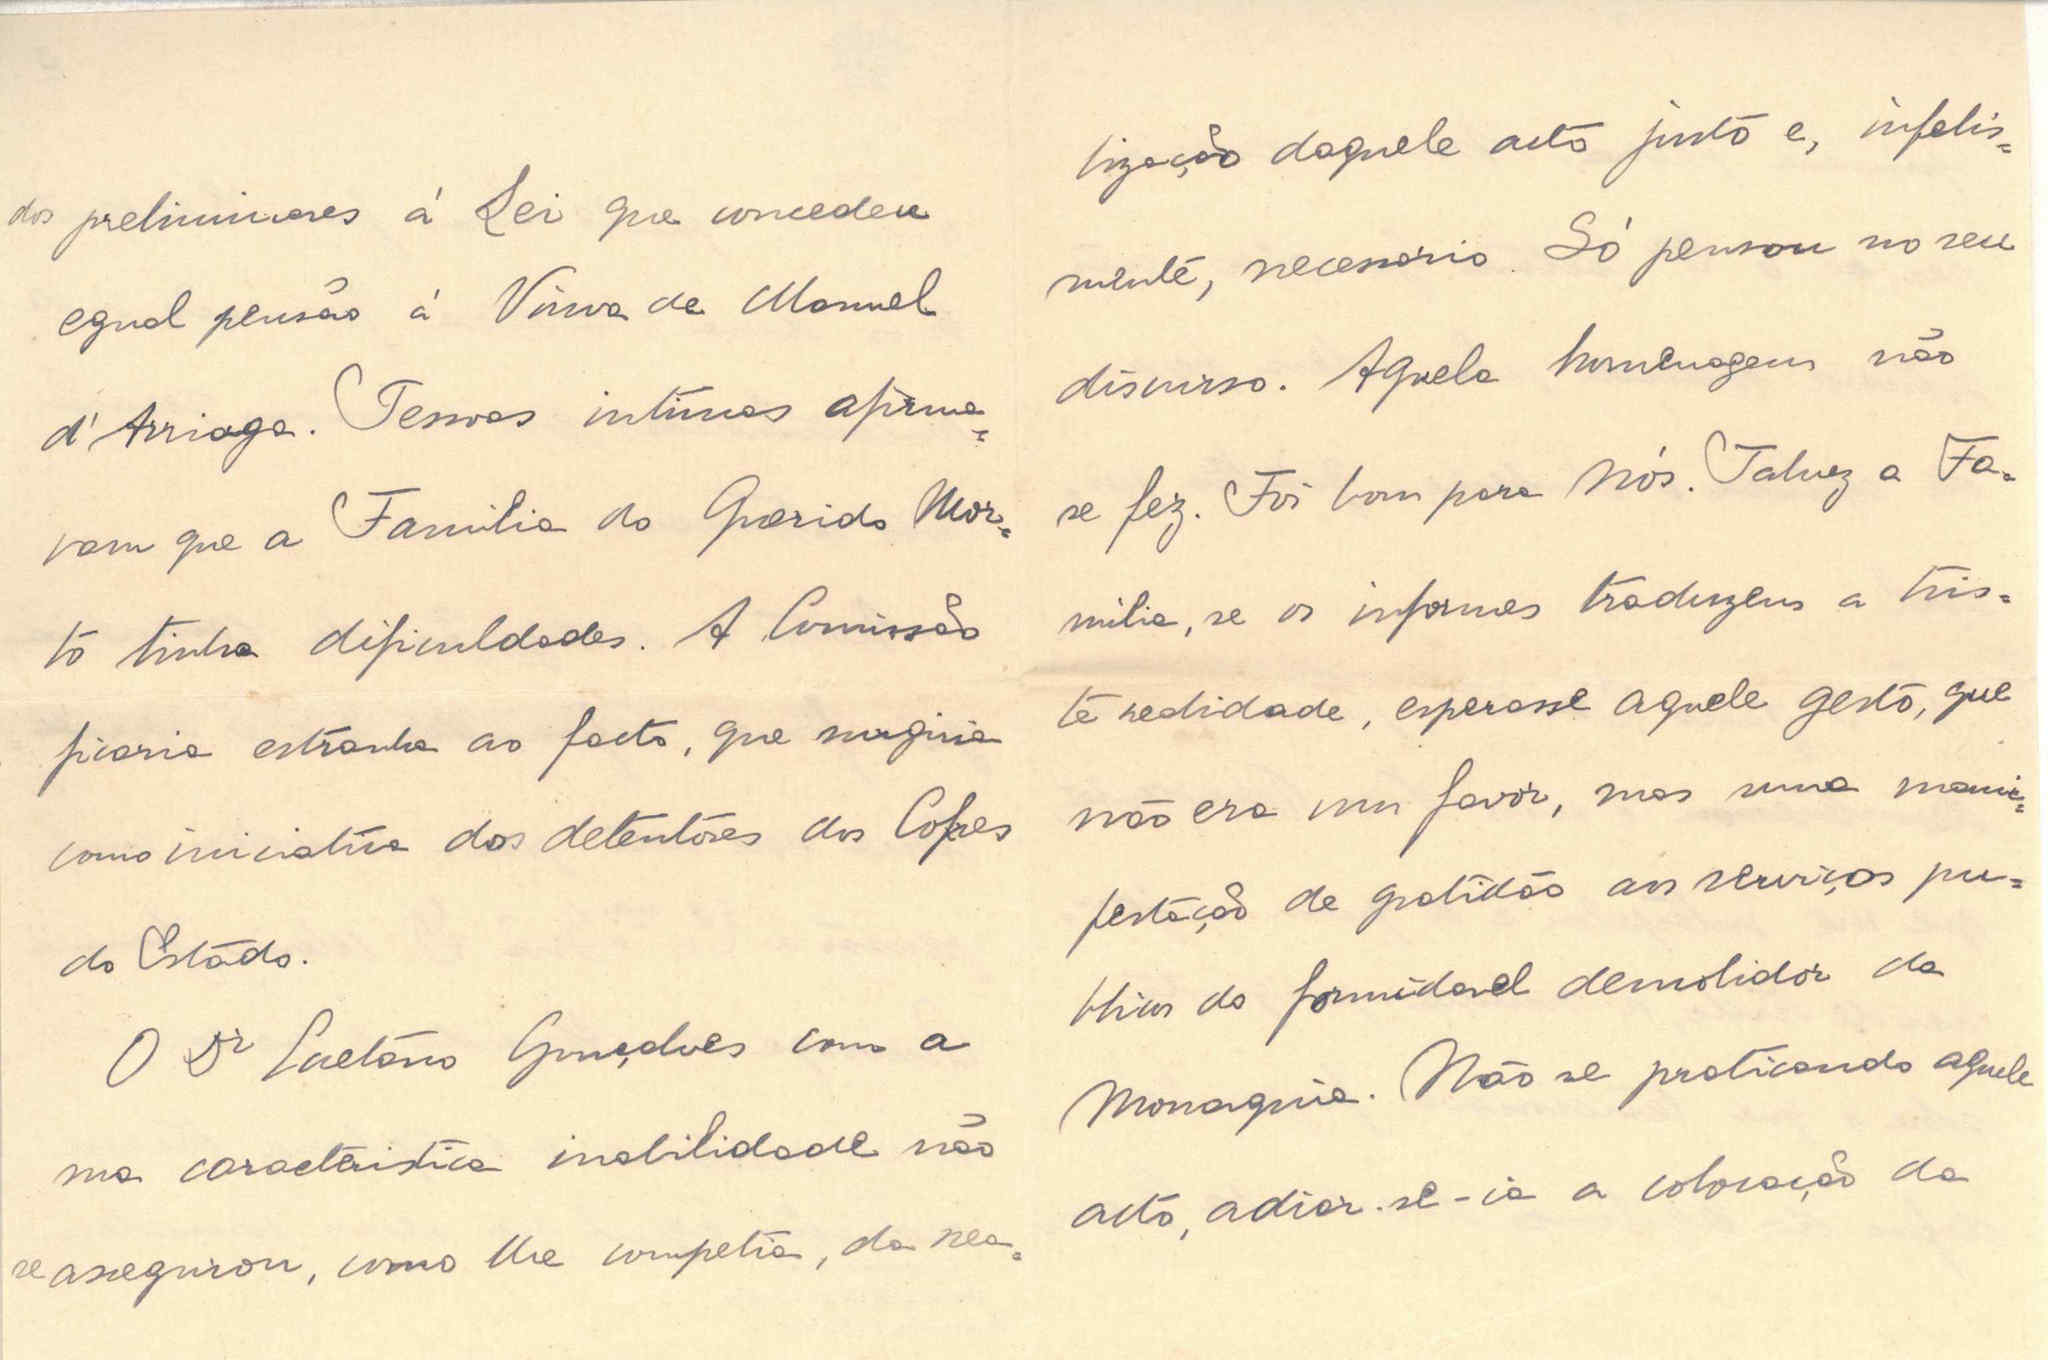 dos preliminares á Lei que concedeu
egual pensão á Viuva de Manuel
d'Arriaga. Pessoas intimas afirma=
vam que a Familia do Querido Mor=
to tinha dificuldades. A Comissão
ficaria estranha ao facto, que surgiria
como iniciativa dos detentôres dos Cofres
do Estádo.
O Dr Caetáno Gonçalves com a
sua caracteristica inabilidade não
se assegurou, como lhe competia, da rea=
lização daquele acto justo e, infelis=
mente, necessario. Só pensou no seu
discurso. Aquela homenagem não
se fez. Foi bom para Nós. Talvez a Fa=
milia, se os informes traduzem a tris=
te realidade, esperasse aquele gesto, que
não era um favôr, mas uma mani=
festação de gratidão aos serviços pu=
blicos do formidavel demolidor da
Monarquia. Não se praticando aquele
acto, adiar-se-ia a colocação da